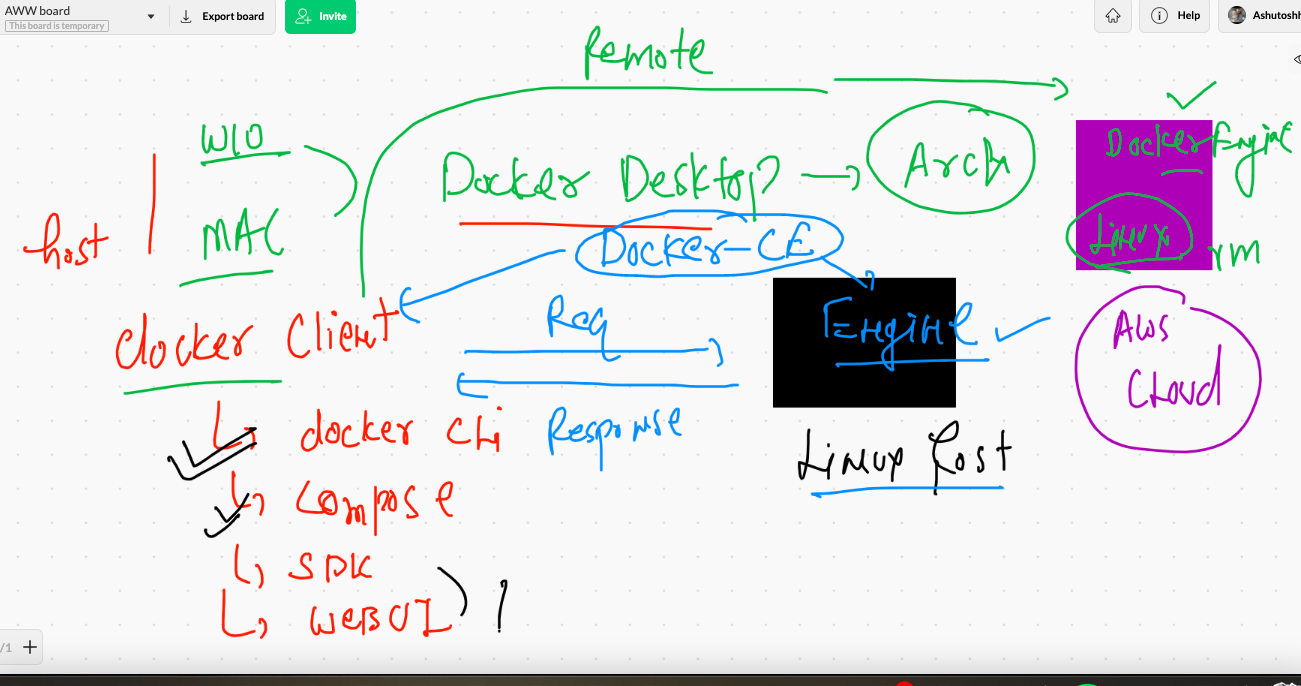 AWW board
This board is temporary
Export board
Invite
Help
Ashutosh
Remote
W10
MAC
host
Docker Desktop
Arch
Docker Engine
Linux
Docker-CE
docker client
Req
Response
Engine
Linux host
AWS
Cloud
docker cli
compose
SDK
WEBUI
/1